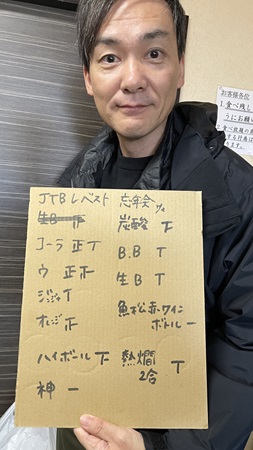 お客様各位
1. 食べ残し
うにお願い
2. 食べ放題の
JTBレベスト 忘年会
生B 下
炭酸 下
コーラ 正 丅
B.B 丅
ウ 正 正
生B 丅
ジンジャ 丅
魚松赤ワイン
ボトル 一
オレンジ 正
ハイボール 下
熱燗 丅
2合
神 一